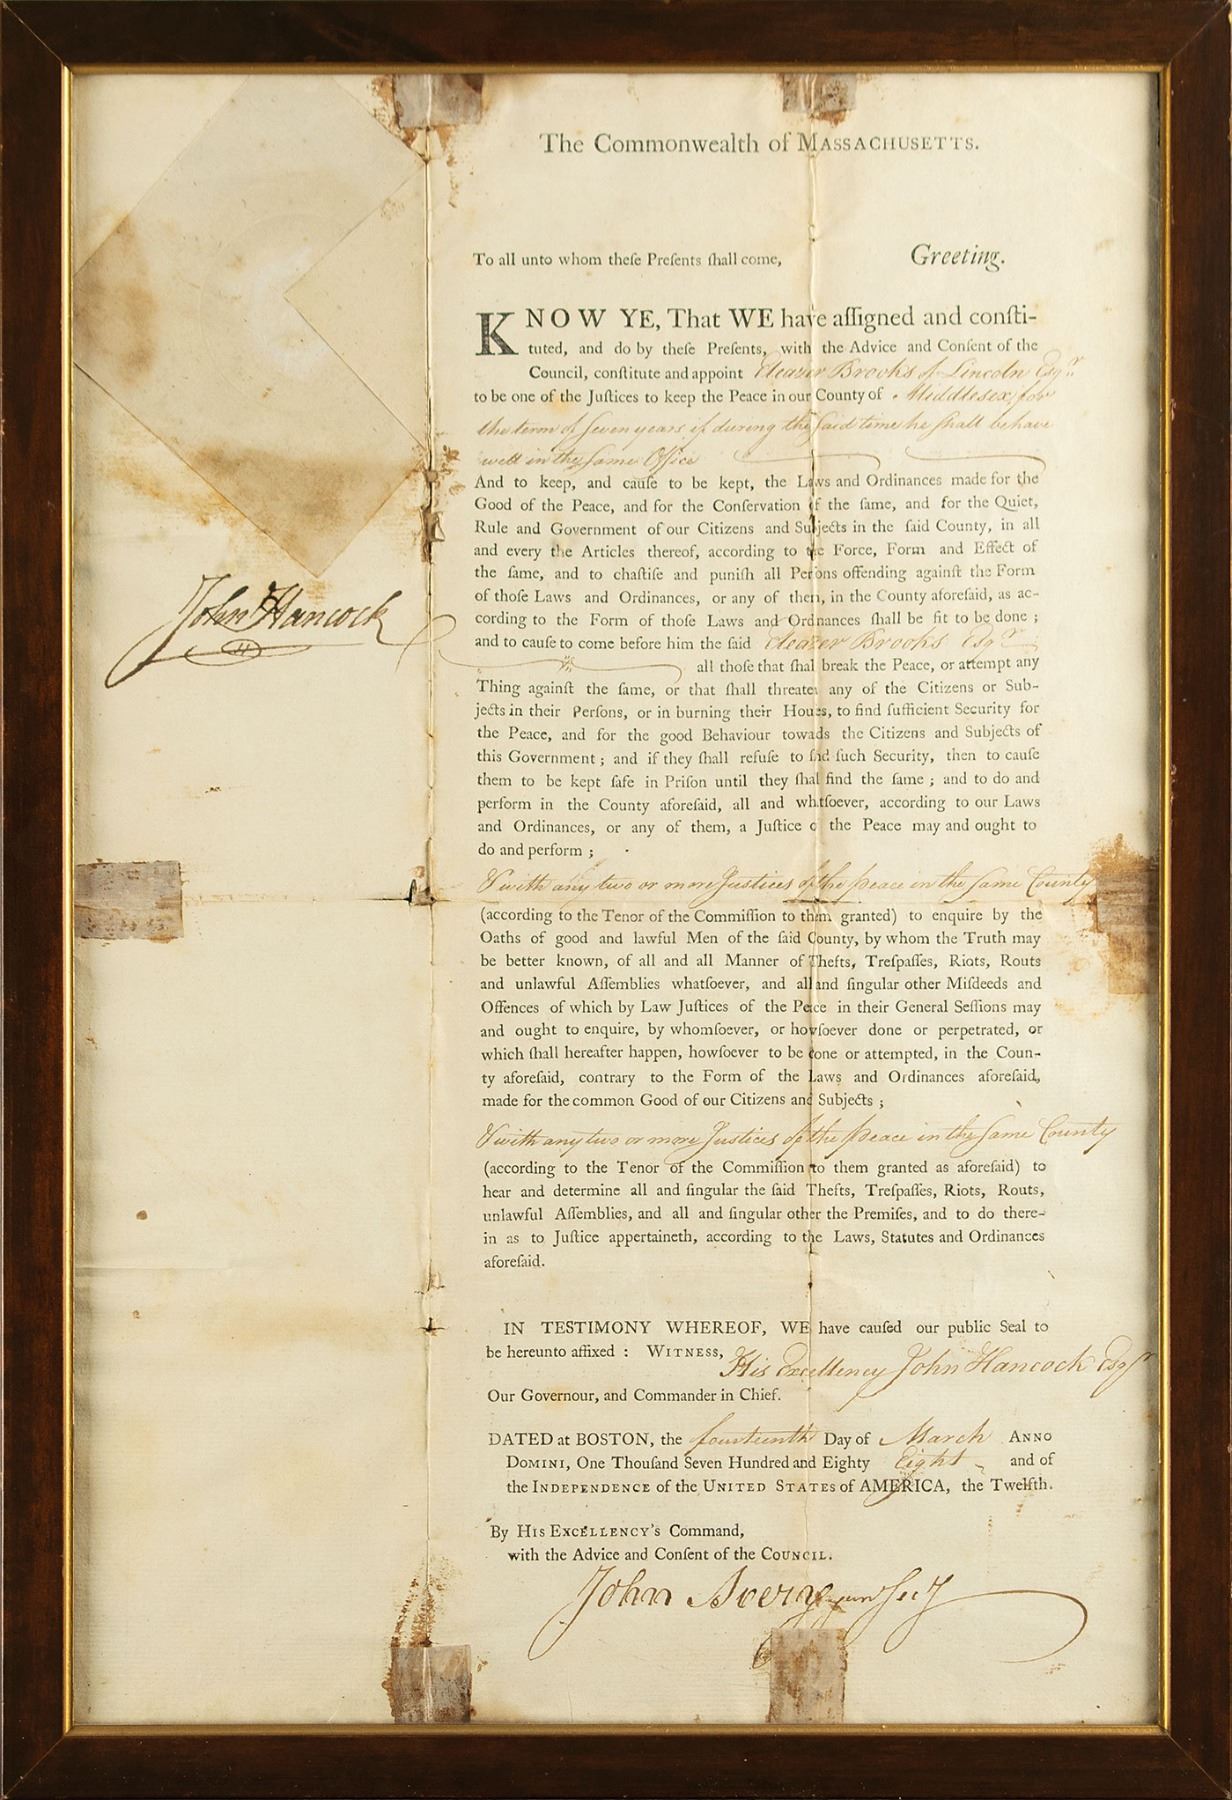 The Commonwealth of MASSACHUSETTS.
To all unto whom theſe Preſents ſhall come, Greeting.
KNOW YE, That WE have aſſigned and conſti-
tuted, and do by theſe Preſents, with the Advice and Conſent of the
Council, conſtitute and appoint Eleazer Brooks of Lincoln Esqr
to be one of the Juſtices to keep the Peace in our County of Middlesex, for
the term of ſeven years if during the ſaid time he ſhall behave
well in the ſame Office
And to keep, and cauſe to be kept, the Laws and Ordinances made for the
Good of the Peace, and for the Conſervation of the ſame, and for the Quiet,
Rule and Government of our Citizens and Subjects in the ſaid County, in all
and every the Articles thereof, according to the Force, Form and Effect of
the ſame, and to chaſtiſe and puniſh all Perſons offending againſt the Form
of thoſe Laws and Ordinances, or any of them, in the County aforeſaid, as ac-
cording to the Form of thoſe Laws and Ordinances ſhall be fit to be done ;
and to cauſe to come before him the ſaid Eleazer Brooks Esqr
all thoſe that ſhall break the Peace, or attempt any
Thing againſt the ſame, or that ſhall threaten any of the Citizens or Sub-
jects in their Perſons, or in burning their Houſes, to find ſufficient Security for
the Peace, and for the good Behaviour towards the Citizens and Subjects of
this Government ; and if they ſhall refuſe to find ſuch Security, then to cauſe
them to be kept ſafe in Priſon until they ſhall find the ſame ; and to do and
perform in the County aforeſaid, all and whatſoever, according to our Laws
and Ordinances, or any of them, a Juſtice of the Peace may and ought to
do and perform ;
& with any two or more Justices of the peace in the ſame County
(according to the Tenor of the Commiſſion to them granted) to enquire by the
Oaths of good and lawful Men of the ſaid County, by whom the Truth may
be better known, of all and all Manner of Thefts, Treſpaſſes, Riots, Routs
and unlawful Aſſemblies whatſoever, and all and ſingular other Miſdeeds and
Offences of which by Law Juſtices of the Peace in their General Seſſions may
and ought to enquire, by whomſoever, or howſoever done or perpetrated, or
which ſhall hereafter happen, howſoever to be done or attempted, in the Coun-
ty aforeſaid, contrary to the Form of the Laws and Ordinances aforeſaid,
made for the common Good of our Citizens and Subjects ;
& with any two or more Justices of the peace in the ſame County
(according to the Tenor of the Commiſſion to them granted as aforeſaid) to
hear and determine all and ſingular the ſaid Thefts, Treſpaſſes, Riots, Routs,
unlawful Aſſemblies, and all and ſingular other the Premiſes, and to do there-
in as to Juſtice appertaineth, according to the Laws, Statutes and Ordinances
aforeſaid.
John Hancock
IN TESTIMONY WHEREOF, WE have cauſed our public Seal to
be hereunto affixed : WITNESS, His Excellency John Hancock Esqr
Our Governour, and Commander in Chief.
DATED at BOSTON, the fourteenth Day of March ANNO
DOMINI, One Thouſand Seven Hundred and Eighty Eight and of
the INDEPENDENCE of the UNITED STATES of AMERICA, the Twelfth.
By HIS EXCELLENCY'S Command,
with the Advice and Conſent of the COUNCIL.
John Avery jun Secy